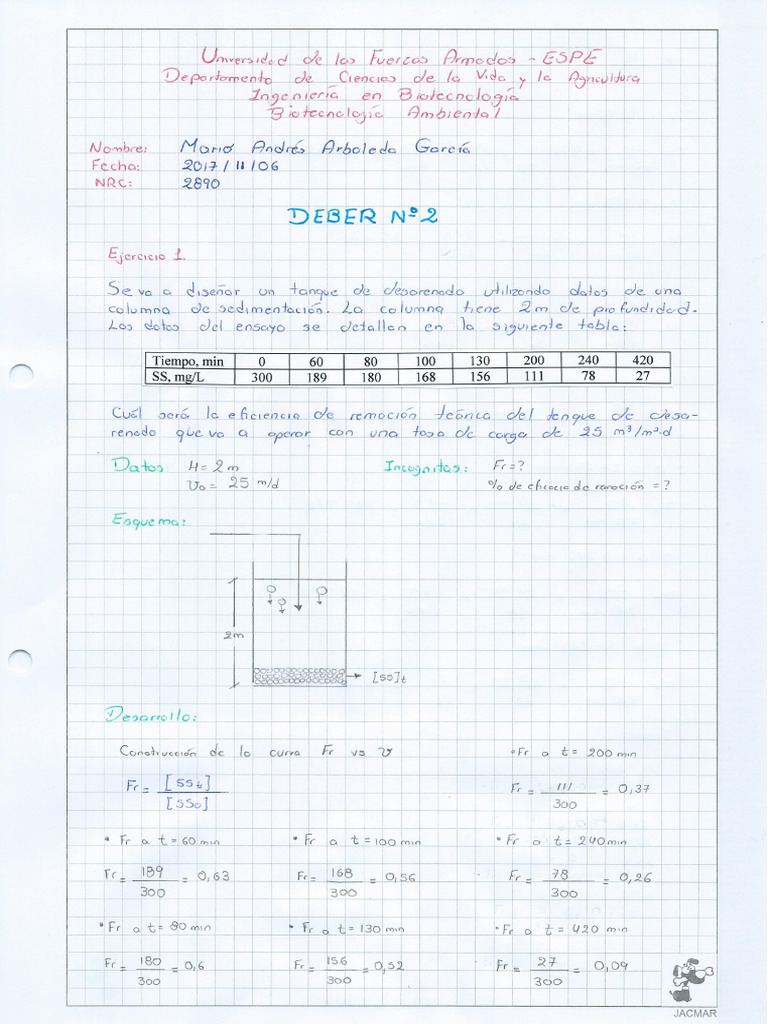 Universidad de las Fuerzas Armadas - ESPE
Departamento de Ciencias de la Vida y la Agricultura
Ingeniería en Biotecnología
Biotecnología Ambiental
Nombre: Mario Andrés Arboleda García
Fecha: 2017/11/06
NRC: 2890
DEBER Nº 2
Ejercicio 1.
Se va a diseñar un tanque de desarenado utilizando datos de una
columna de sedimentación. La columna tiene 2m de profundidad.
Los datos del ensayo se detallan en la siguiente tabla:
Tiempo, min 0 60 80 100 130 200 240 420
SS, mg/L 300 189 180 168 156 111 78 27
Cuál será la eficiencia de remoción teórica del tanque de desa-
renado que va a operar con una tasa de carga de 25 m³/m².d
Datos: H = 2 m Incognitas: Fr = ?
Vo = 25 m/d % de eficacia de remoción = ?
Esquema:
2m
[SS]t
Desarrollo:
Construcción de la curva Fr vs v
Fr = [SSt] / [SSo]
• Fr a t = 200 min
Fr = 111/300 = 0,37
• Fr a t = 60 min • Fr a t = 100 min • Fr a t = 240 min
Fr = 189/300 = 0,63 Fr = 168/300 = 0,56 Fr = 78/300 = 0,26
• Fr a t = 80 min • Fr a t = 130 min • Fr a t = 420 min
Fr = 180/300 = 0,6 Fr = 156/300 = 0,52 Fr = 27/300 = 0,09
JACMAR